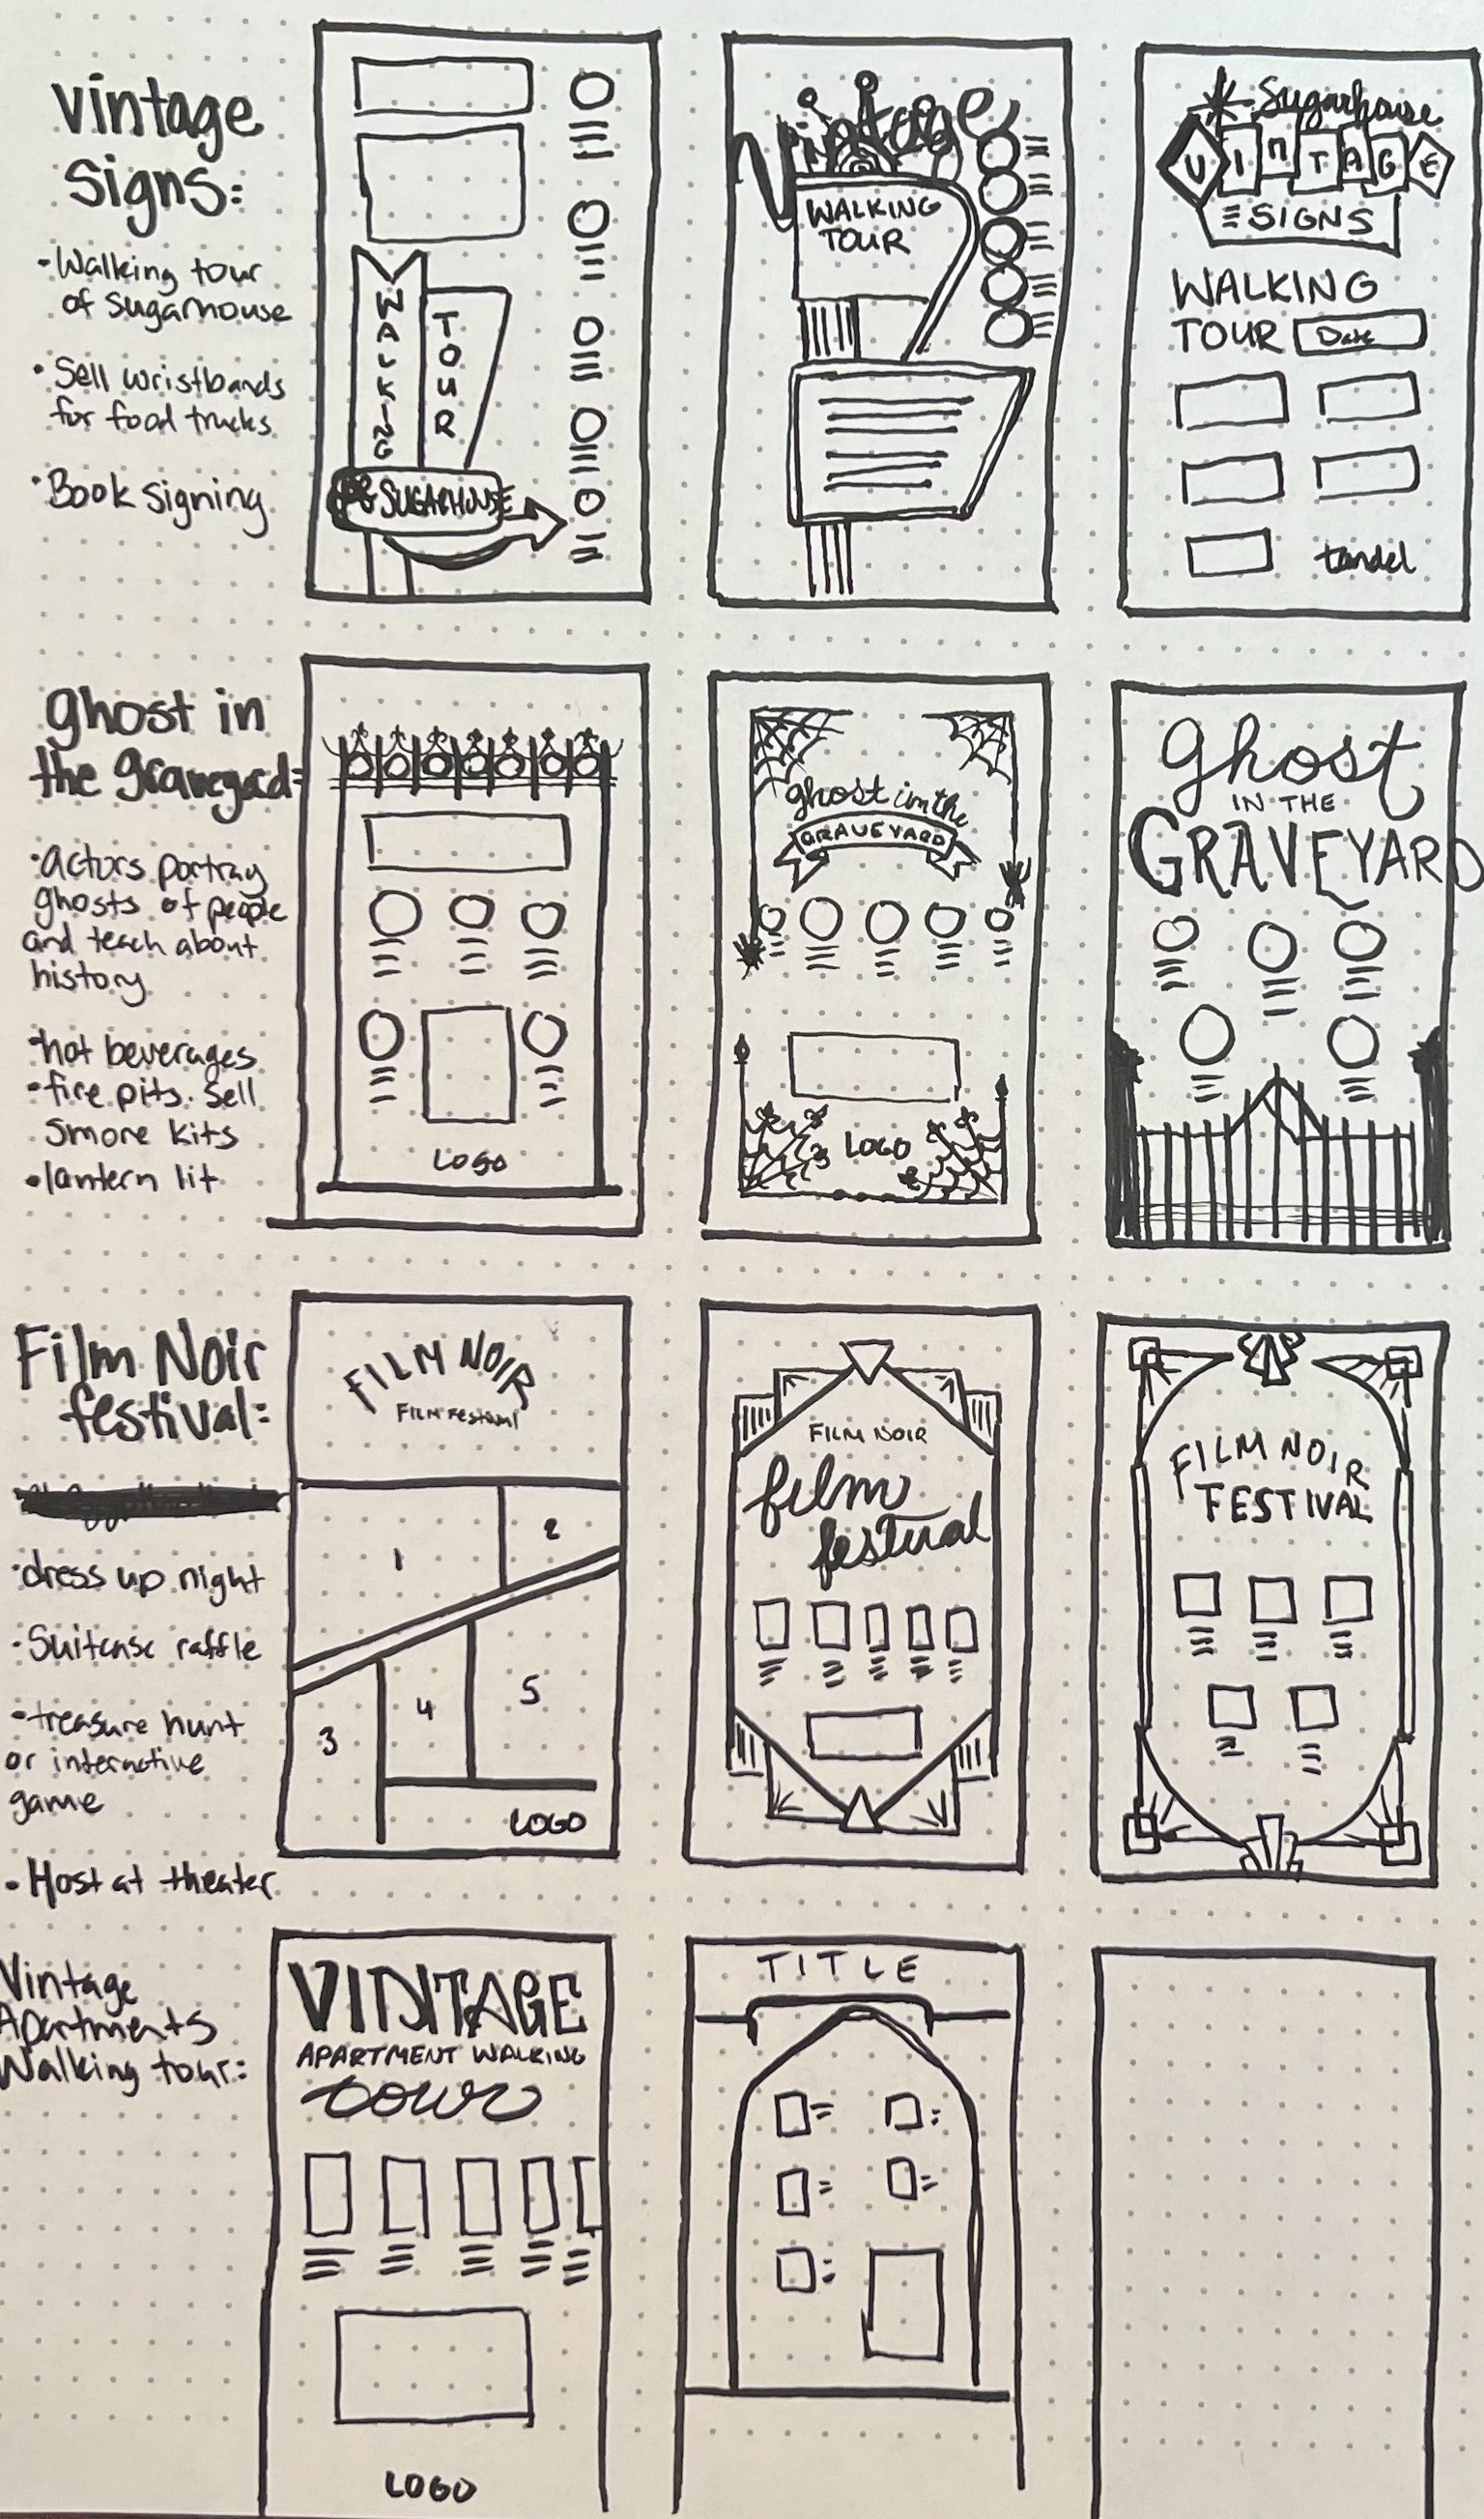 Vintage
Signs:
- Walking tour
of Sugarhouse
• Sell wristbands
for food trucks
• Book signing
WALKING
TOUR
SUGARHOUSE
Vintage
WALKING
TOUR
Sugarhouse
VINTAGE
SIGNS
WALKING
TOUR Date
Ghost in
the graveyard:
• actors portray
ghosts of people
and teach about
history
• hot beverages
• fire pits. Sell
Smore kits
• lantern lit
LOGO
ghost in the
GRAVEYARD
LOGO
ghost
IN THE
GRAVEYARD
Film Noir
festival:
• dress up night
• Suitcase raffle
• treasure hunt
or interactive
game
• Host at theater
FILM NOIR
FILM FESTIVAL
1
2
3
4
5
LOGO
FILM NOIR
film
festival
FILM NOIR
FESTIVAL
Vintage
Apartments
Walking tour:
VINTAGE
APARTMENT WALKING
TOUR
LOGO
TITLE